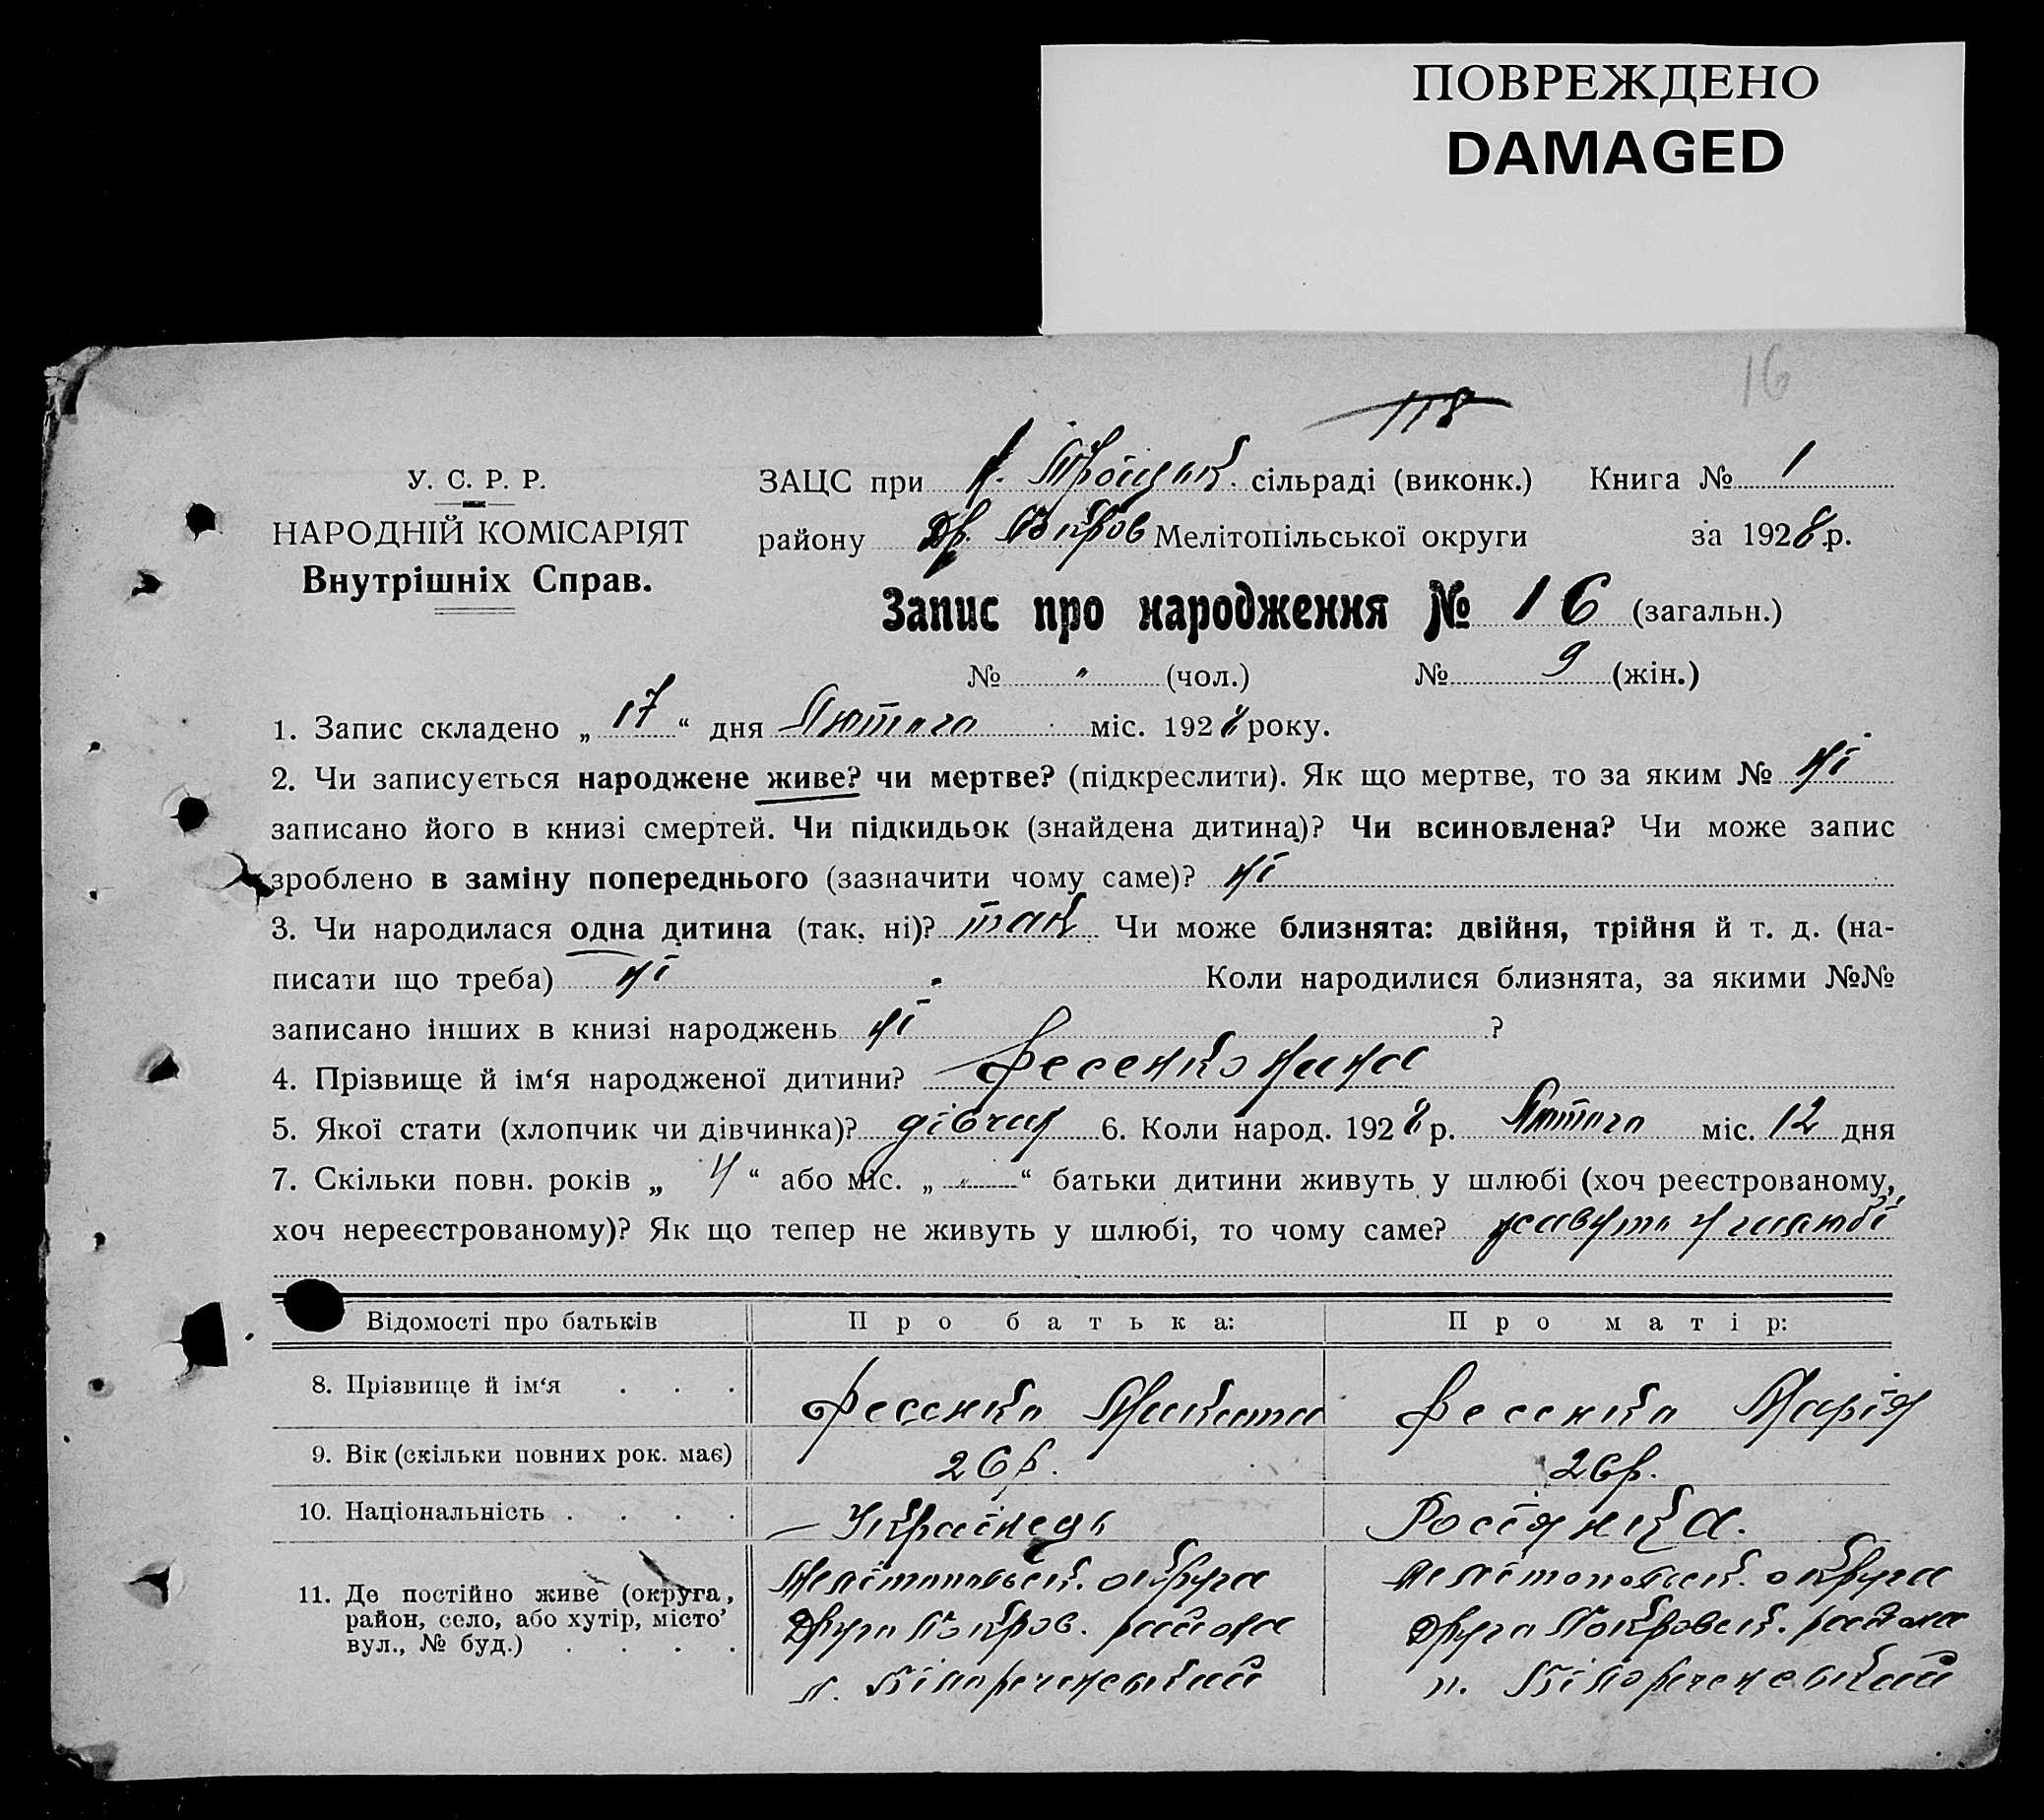 ПОВРЕЖДЕНО
DAMAGED
16
118
У. С. Р. Р.
НАРОДНІЙ КОМІСАРІЯТ
Внутрішніх Справ.
ЗАЦС при Троїцьк. сільраді (виконк.) Книга № 1
району Др. Покров Мелітопільської округи за 1928 р.
Запис про народження № 16 (загальн.)
№ " (чол.) № 9 (жін.)
1. Запис складено „ 17 “ дня Лютого міс. 1928 року.
2. Чи записується народжене живе? чи мертве? (підкреслити). Як що мертве, то за яким № ні
записано його в книзі смертей. Чи підкидьок (знайдена дитина)? Чи всиновлена? Чи може запис
зроблено в заміну попереднього (зазначити чому саме)? ні
3. Чи народилася одна дитина (так, ні)? так Чи може близнята: двійня, трійня й т. д. (на-
писати що треба) ні Коли народилися близнята, за якими №№
записано інших в книзі народжень ні ?
4. Прізвище й ім‘я народженої дитини? Фесенко
5. Якої стати (хлопчик чи дівчинка)? дівчин 6. Коли народ. 1928 р. Лютого міс. 12 дня
7. Скільки повн. років „ “ або міс. „ " “ батьки дитини живуть у шлюбі (хоч реєстрованому,
хоч нереєстрованому)? Як що тепер не живуть у шлюбі, то чому саме? живуть у шлюбі
Відомості про батьків Про батька: Про матір:
8. Прізвище й ім‘я . . . Фесенко Микита Фесенко Марія
9. Вік (скільки повних рок. має) 26 р. 26 р.
10. Національність . . . . Українець Росіянка.
11. Де постійно живе (округа, район, село, або хутір, місто вул., № буд.) . . . .
Мелітопольськ. округа
Друго Покров. района
п. Білореченський
Мелітопольськ. округа
Друго Покровськ. района
п. Білореченський